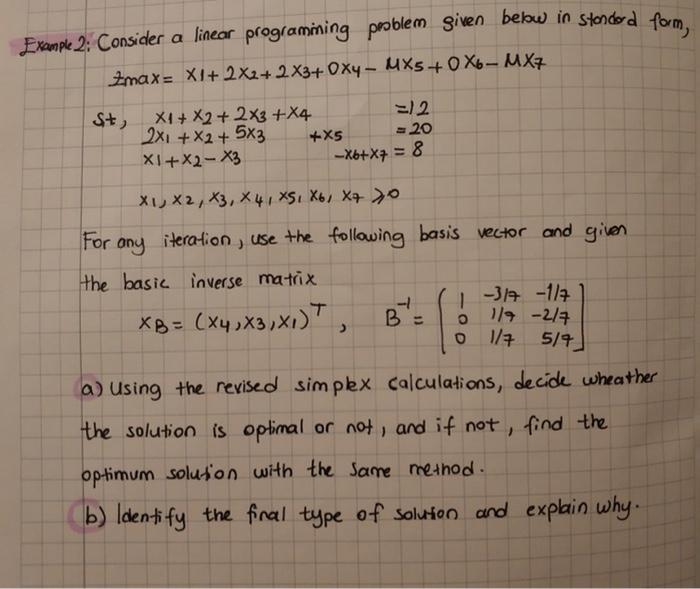 Example 2: Consider a linear programming problem given below in standard form,
Zmax = X1 + 2X2 + 2X3 + 0X4 - MX5 + 0X6 - MX7
St, X1 + X2 + 2X3 + X4 = 12
2X1 + X2 + 5X3 + X5 = 20
X1 + X2 - X3 -X6+X7 = 8
X1, X2, X3, X4, X5, X6, X7 ≥0
For any iteration, use the following basis vector and given
the basic inverse matrix
XB = (X4, X3, X1)^T, B^-1 = [1 -3/7 -1/7
0 1/7 -2/7
0 1/7 5/7]
a) Using the revised simplex calculations, decide wheather
the solution is optimal or not, and if not, find the
optimum solution with the same method.
b) Identify the final type of solution and explain why.